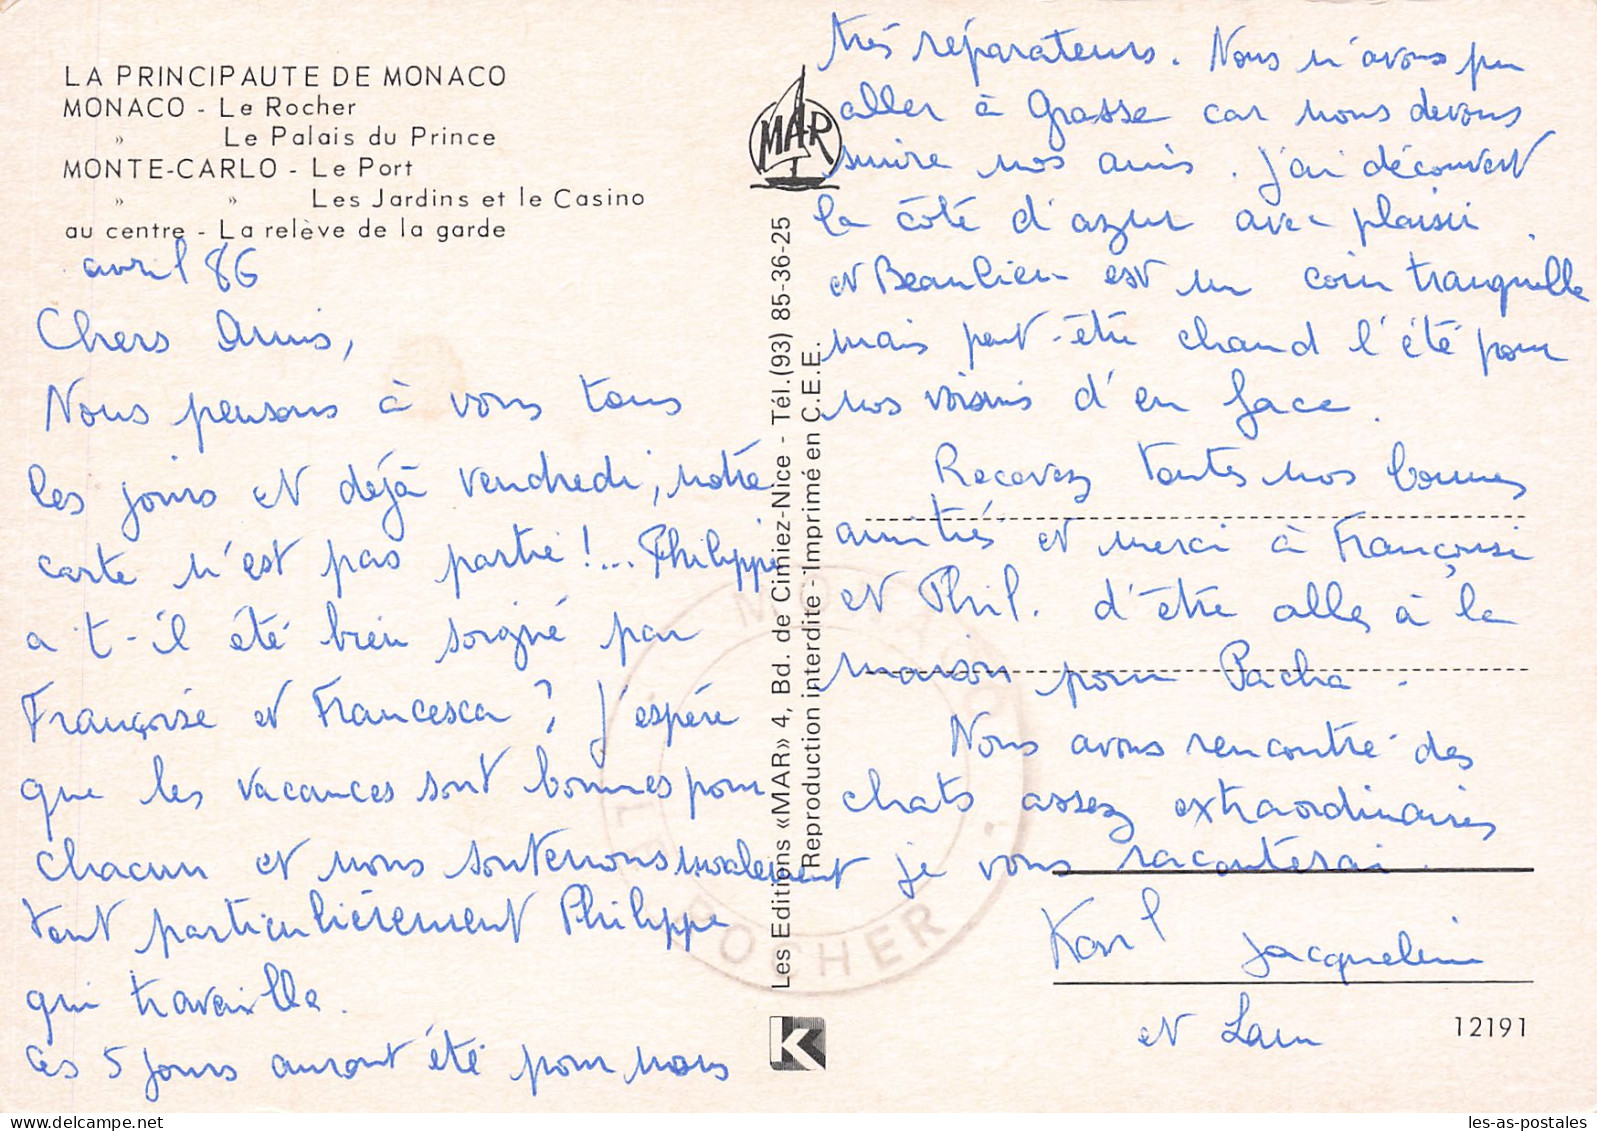 LA PRINCIPAUTE DE MONACO
MONACO - Le Rocher
» Le Palais du Prince
MONTE-CARLO - Le Port
» » Les Jardins et le Casino
au centre - La relève de la garde
avril 86
Chers Amis,
Nous pensons à vous tous
les jours et déjà vendredi, notre
carte n'est pas partie !... Philippe
a t-il été bien soigné par
Françoise et Francesca ? J'espère
que les vacances sont bonnes pour
chacun et nous soutenons moralement
tout particulièrement Philippe
qui travaille.
Ces 5 jours auront été pour nous
MAR
Les Editions «MAR» 4, Bd. de Cimiez-Nice - Tél.(93) 85-36-25
Reproduction interdite - Imprimé en C.E.E.
K
très réparateurs. Nous n'avons pu
aller à Grasse car nous devons
suivre nos amis. J'ai découvert
la côte d'azur avec plaisir
et Beaulieu est un coin tranquille
mais peut-être chaud l'été pour
nos voisins d'en face.
Recevez toutes nos bonnes
amitiés et merci à Françoise
et Phil. d'être allés à la
maison pour Pacha.
Nous avons rencontré des
chats assez extraordinaires
je vous raconterai.
Karl Jacqueline
et
12191
MONACO
LE ROCHER
les-as-postales